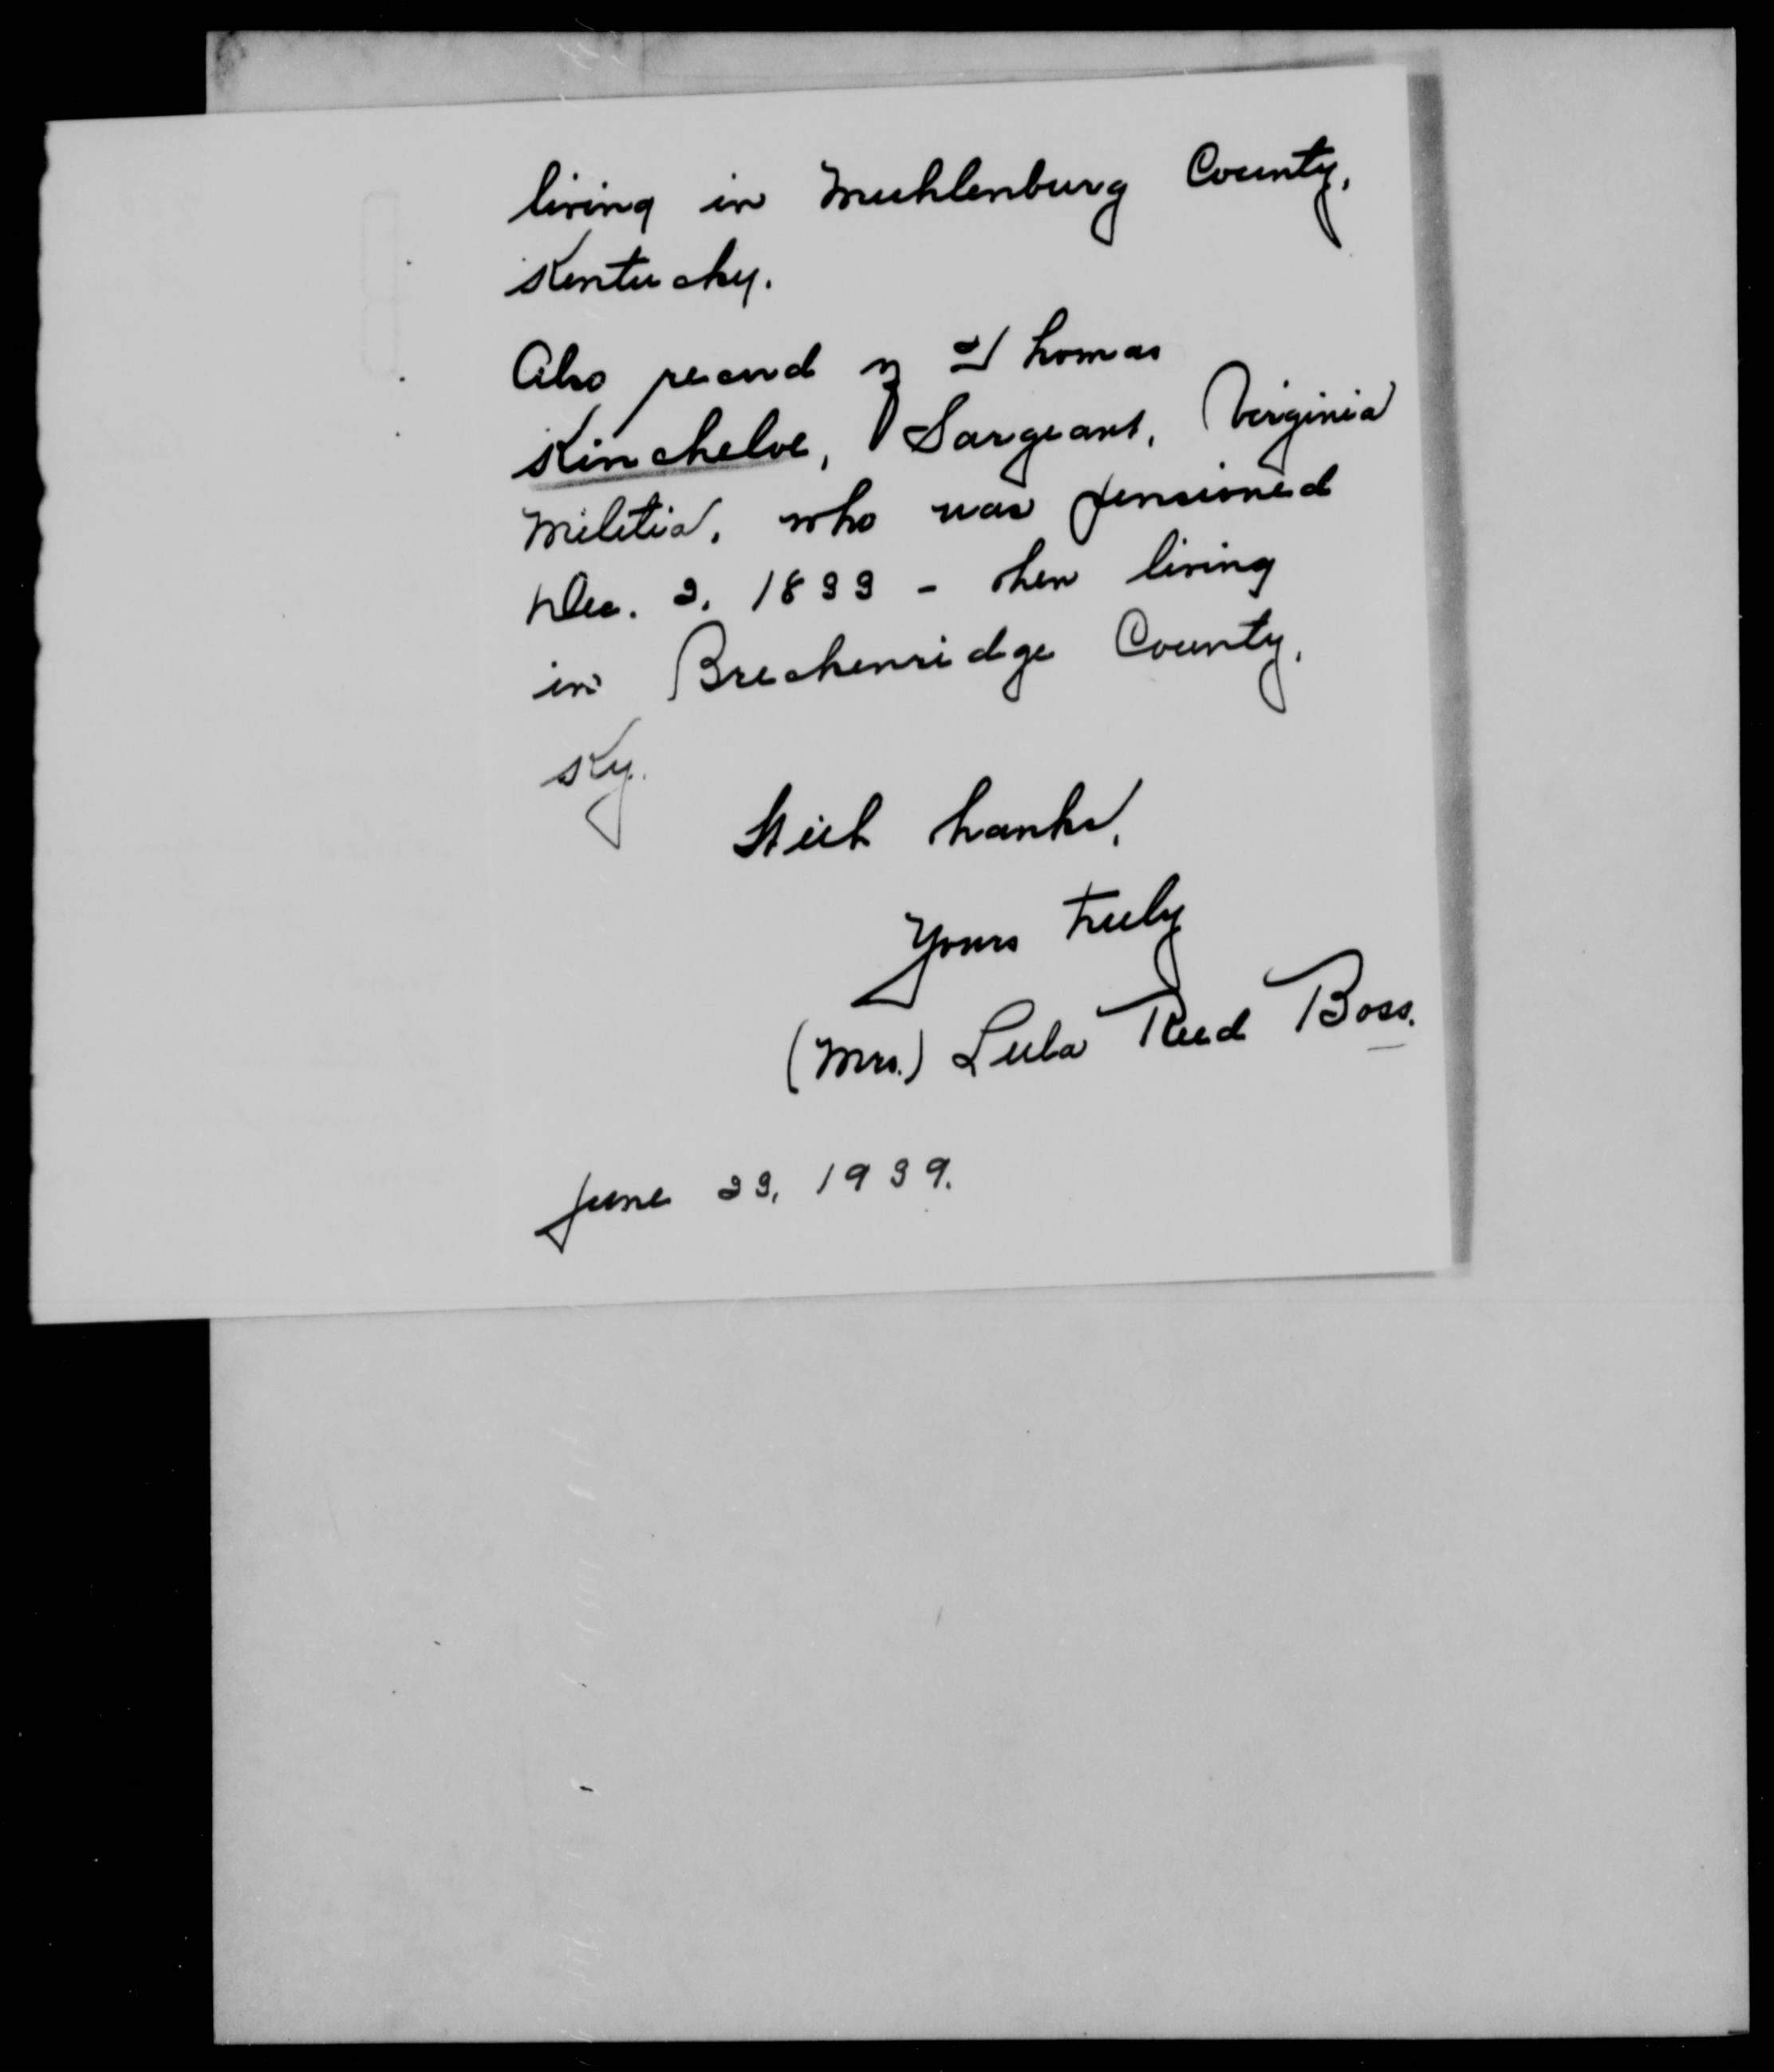 living in Muhlenburg County,
Kentucky.
Also record of Thomas
Kincheloe, Sargeant, Virginia
Militia, who was pensioned
Dec. 2, 1833 - then living
in Breckenridge County,
Ky.
With thanks,
Yours truly
(Mrs.) Lula Reed Boss.
June 23, 1939.